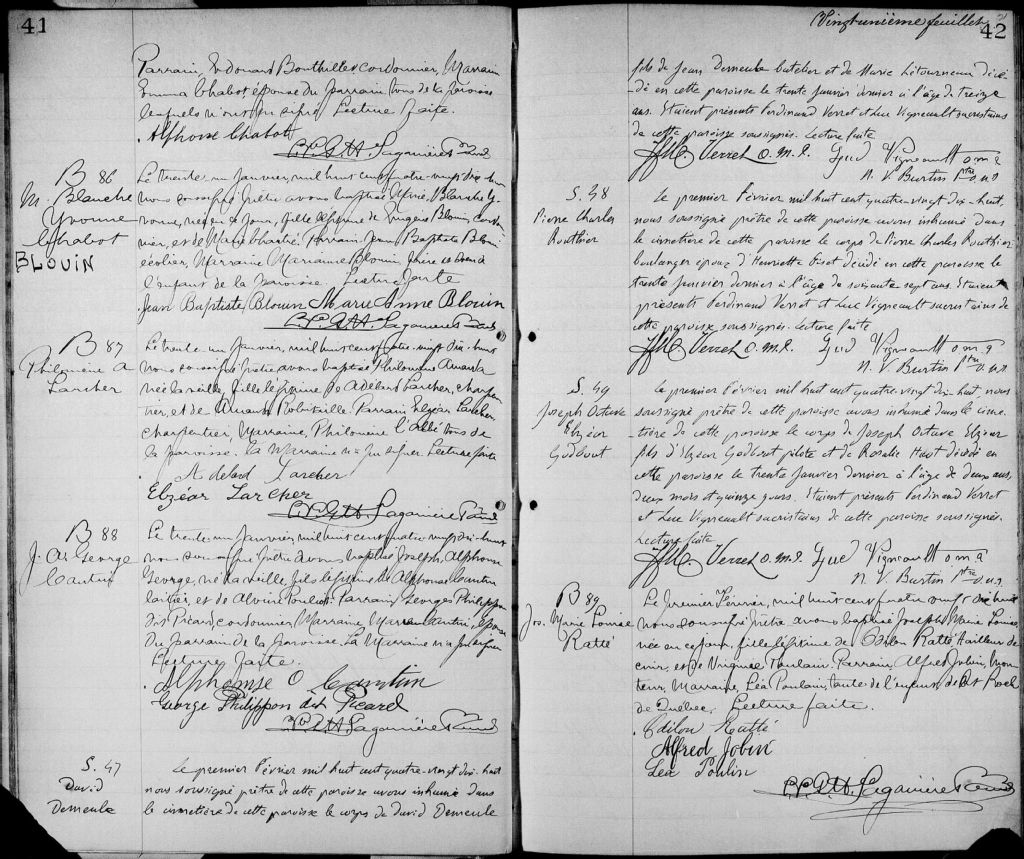 41
Parrain Edouard Bouthillet, cordonnier, Marraine
Emma Chabot épouse du parrain tous de la paroisse
lesquels n'ont su signer Lecture faite.
Alphonse Chabot
Laganière
B 86
M. Blanche
Yvonne
Chabot
BLOUIN
Le trente-un Janvier, mil huit cent quatre-vingt dix-huit
nous soussigné Prêtre avons baptisé Marie Blanche Y-
vonne, née ce jour, fille légitime de Blouin,
nier, et de Marie Parrain Jean Baptiste Blouin
écolier, Marraine Marianne Blouin,
l'enfant de la paroisse. Lecture faite
Jean Baptiste Blouin Marie Anne Blouin
Laganière
B 87
Philomène A
Larcher
Le trente-un Janvier, mil huit cent quatre-vingt dix-huit
nous soussigné Prêtre avons baptisé Philomène Amanda
née la veille, fille légitime de Adélard Larcher, charpen-
tier, et de Amanda Robitaille. Parrain Elzéar Larcher
charpentier, Marraine, Philomène tous de
la paroisse. La Marraine n'a pu signer Lecture faite
Adelard Larcher
Elzéar Larcher
Laganière
B 88
J. Al. George
Cantin
Le trente-un Janvier, mil huit cent quatre-vingt dix-huit
nous soussigné Prêtre avons baptisé Joseph Alphonse
George, né la veille, fils légitime de Alphonse Cantin
laitier, et de Alvine Pouliot. Parrain, Georges Philippon
dit Picard, cordonnier, Marraine, Cantin, épouse
du parrain de la paroisse. La Marraine n'a pu signer
Lecture faite.
Alphonse O Cantin
George Philippon dit Picard
Laganière
S. 47
David
Demeule
Le premier Février mil huit cent quatre-vingt dix-huit
nous soussigné prêtre de cette paroisse avons inhumé dans
le cimetière de cette paroisse le corps de David Demeule
Vingtunième feuillet
42
fils de Jean Demeule butcher et de Marie Létourneau décé-
dé en cette paroisse le trente Janvier dernier à l'âge de treize
ans. Etaient présents Ferdinand Verret et Luc Vigneault sacristains
de cette paroisse soussignés. Lecture faite
Verret Vigneault
N. V. Burtin ptre o.m.i
S. 48
Pierre Charles
Routhier
Le premier Février mil huit cent quatre-vingt dix-huit,
nous soussigné prêtre de cette paroisse avons inhumé dans
le cimetière de cette paroisse le corps de Pierre Charles Routhier
boulanger époux d'Henriette décédé en cette paroisse le
trente Janvier dernier à l'âge de soixante sept ans. Etaient
présents Ferdinand Verret et Luc Vigneault sacristains de
cette paroisse soussignés. Lecture faite
Verret Vigneault
N. V. Burtin ptre o.m.i
S. 49
Joseph Octave
Elzéar
Godbout
Le premier Février mil huit cent quatre-vingt dix-huit, nous
soussigné prêtre de cette paroisse avons inhumé dans le cime-
tière de cette paroisse le corps de Joseph Octave Elzéar
fils d'Elzéar Godbout pilote et de Rosalie Huot décédé en
cette paroisse le trente Janvier dernier à l'âge de deux ans,
deux mois et quinze jours. Etaient présents Ferdinand Verret
et Luc Vigneault sacristains de cette paroisse soussignés.
Lecture faite
Verret Vigneault
N. V. Burtin ptre o.m.i
B 89
Jos. Marie Louise
Ratté
Le premier Février, mil huit cent quatre-vingt dix-huit
nous soussigné Prêtre avons baptisé Joseph Marie Louise
née en ce jour, fille légitime de Odilon Ratté, tailleur de
cuir, et de Virginie Poulain. Parrain, Alfred Jobin,
teur, Marraine, Léa Poulain, tante de l'enfant, de St Roch
de Québec. Lecture faite.
Odilon Ratté
Alfred Jobin
Léa Poulin
Laganière